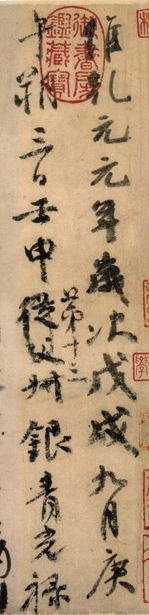 維乾元元年歲次戊戌九月庚
午朔三日壬申第十三從父叔銀青光祿
御書房鑑藏寶